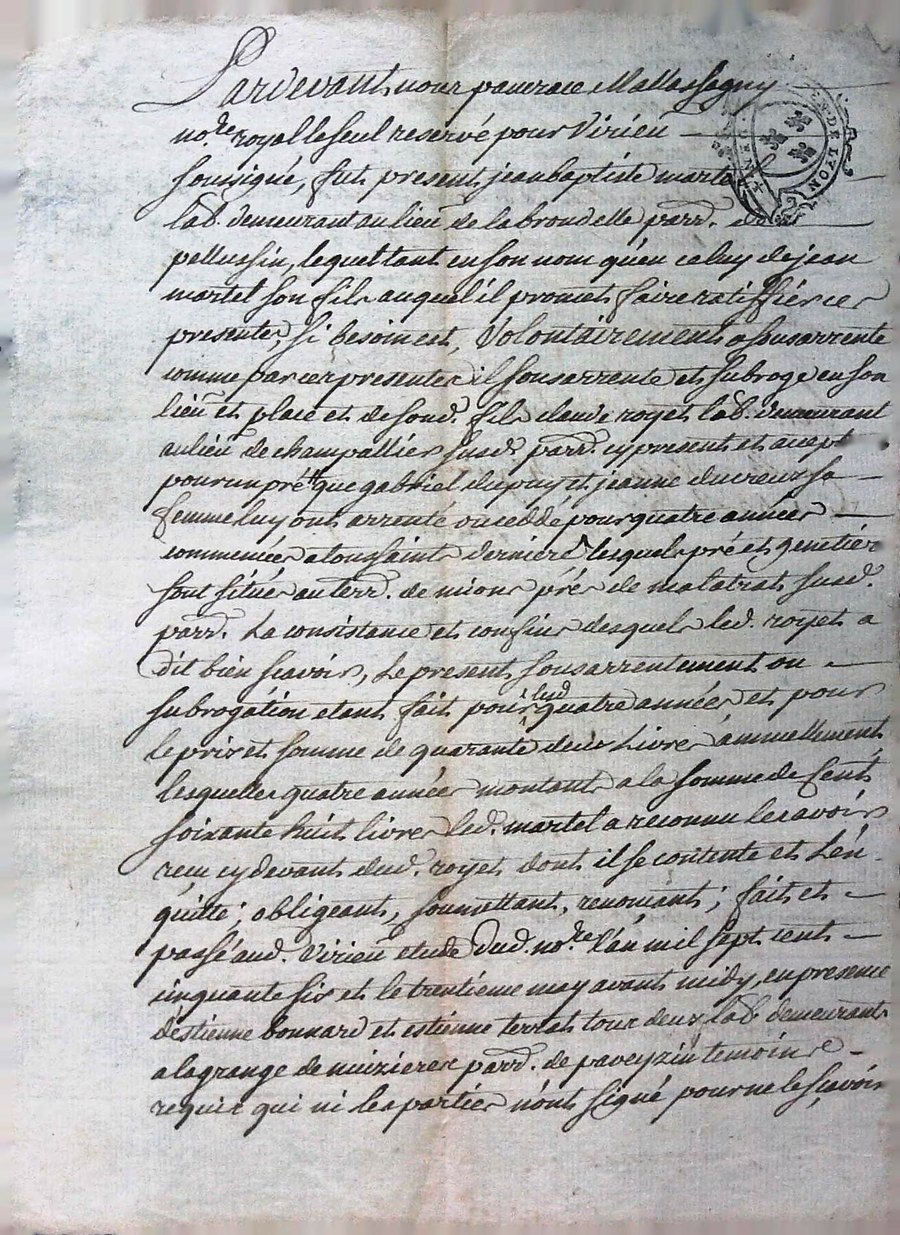 Pardevant nous pancrace Mallassagny
no.re royal le seul reservé pour Virieu
soussigné, fut present jean baptiste martel
lab. demeurant au lieu de la brondelle parr. de
pellussin, lequel tant en son nom qu'en celuy de jean
martel son fils auquel il promet faire ratiffier ces
presentes, si besoin est, Volontairement a sousarrenté
comme par ces presentes il sousarrente et subroge en son
lieu et place et de sond. fils claude royet lab. demeurant
au lieu de champallier susd. parr. cy present et accept.
pour un pré que gabriel dupuy et jeanne ducreux sa
femme luy ont arrenté ou ceddé pour quatre années
commencées a toussaint derniere lesquels pré et genetier
sont situés au terr. de mions près de malatrat susd.
parr. La consistance et confins desquels led. royet a
dit bien scavoir, Le present sousarrentement ou
subrogation etant fait pour lesd quatre années et pour
le prix et somme de quarante deux Livres annuellement
lesquelles quatre années montant a la somme de Cent
soixante huit livres led. martel a reconnu les avoir
recu cy devant dud. royet dont il se contente et L'en
quitte; obligeant, soumettant, renonçant; fait et
passé aud. Virieu etude dud. no.re L'an mil sept cent
cinquante six et le trentieme may avant midy, en presence
d'estienne bonnard et estienne terrat tous deux lab. demeurant
a la grange de muzieres parr. de paveyzin temoins
requis qui ni les parties n'ont signé pour ne le sçavoir
DE LYON